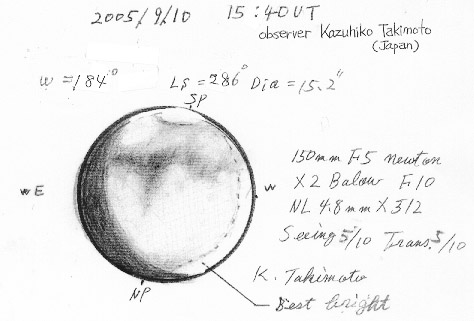 2005/9/10 15:40UT
observer Kazuhiko Takimoto
(Japan)
W=184° Ls=286° Dia=15.2"
SP
150mm F5 newton
X2 Balow F10
NL 4.8mm X312
Seeing 5/10 Trans. 5/10
E
W
K. Takimoto
NP
Best bright